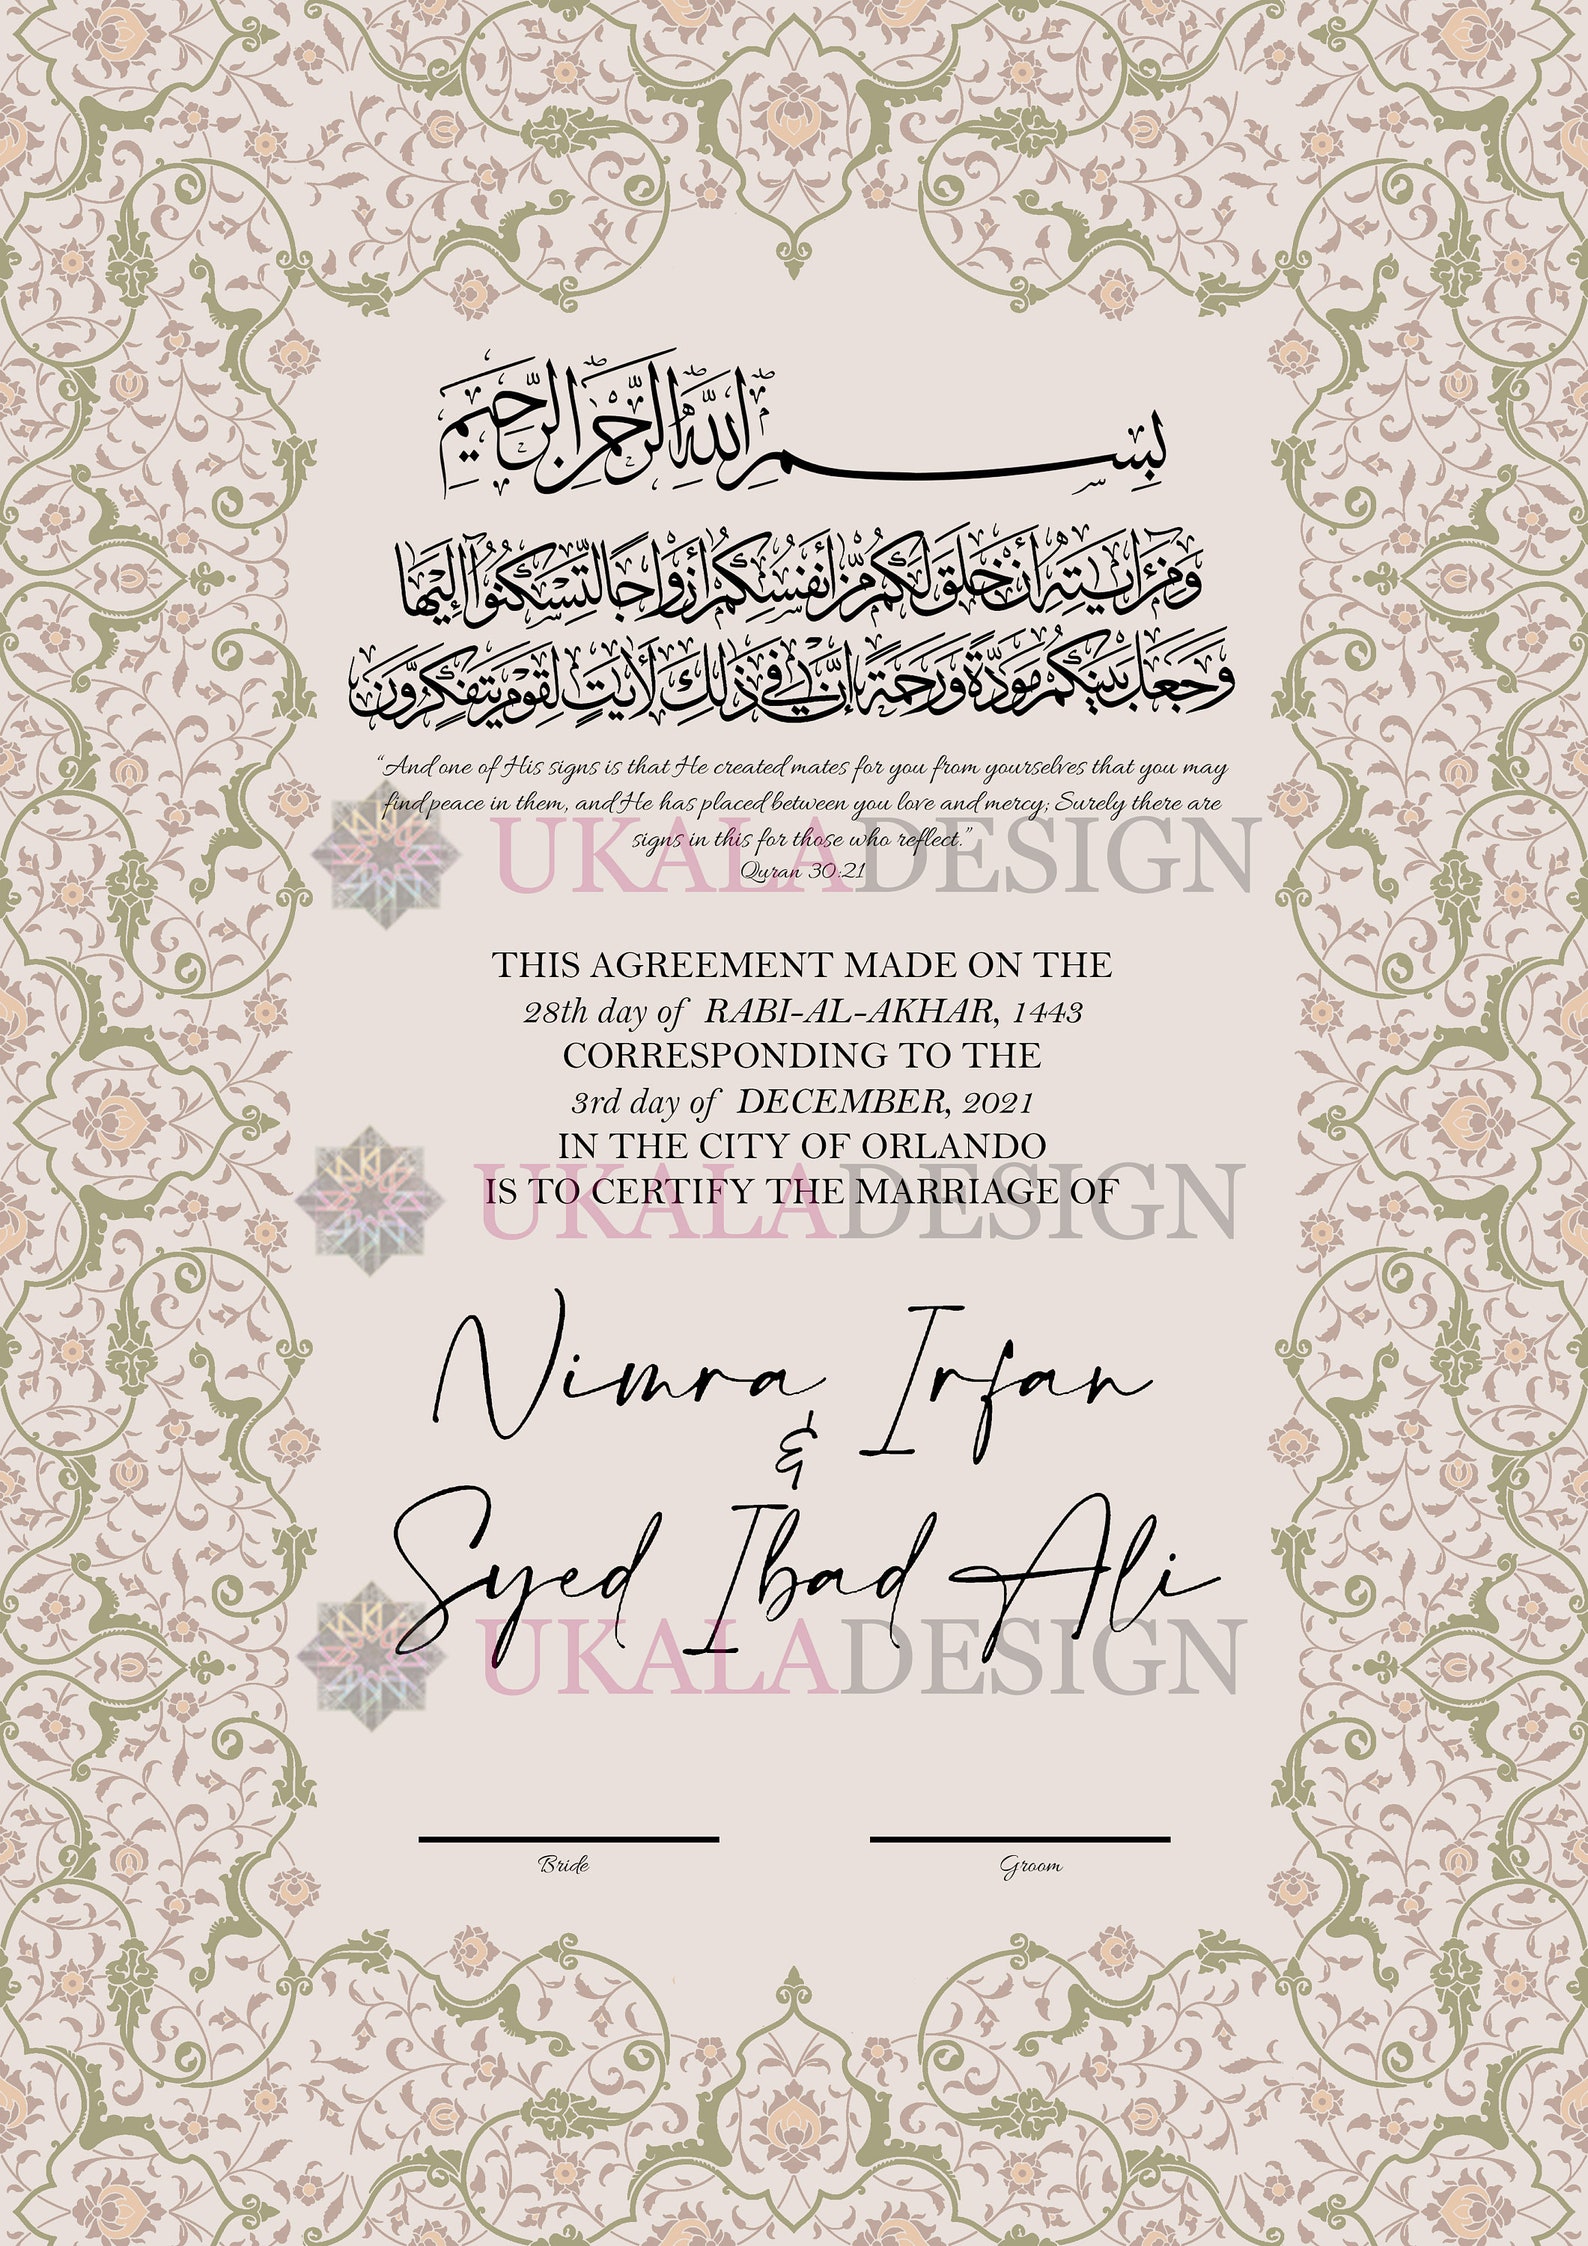 بِسْمِ اللَّهِ الرَّحْمَٰنِ الرَّحِيمِ
وَمِنْ ءَايَٰتِهِ أَنْ خَلَقَ لَكُم مِّنْ أَنفُسِكُمْ أَزْوَٰجًا لِّتَسْكُنُوٓا۟ إِلَيْهَا
وَجَعَلَ بَيْنَكُم مَّوَدَّةً وَرَحْمَةً إِنَّ فِي ذَٰلِكَ لَءَايَٰتٍ لِّقَوْمٍ يَتَفَكَّرُونَ
“And one of His signs is that He created mates for you from yourselves that you may
find peace in them, and He has placed between you love and mercy; Surely there are
signs in this for those who reflect.”
Quran 30:21
UKALADESIGN
THIS AGREEMENT MADE ON THE
28th day of RABI-AL-AKHAR, 1443
CORRESPONDING TO THE
3rd day of DECEMBER, 2021
IN THE CITY OF ORLANDO
IS TO CERTIFY THE MARRIAGE OF
UKALADESIGN
Nimra Irfan
&
Syed Ibad Ali
UKALADESIGN
Bride Groom